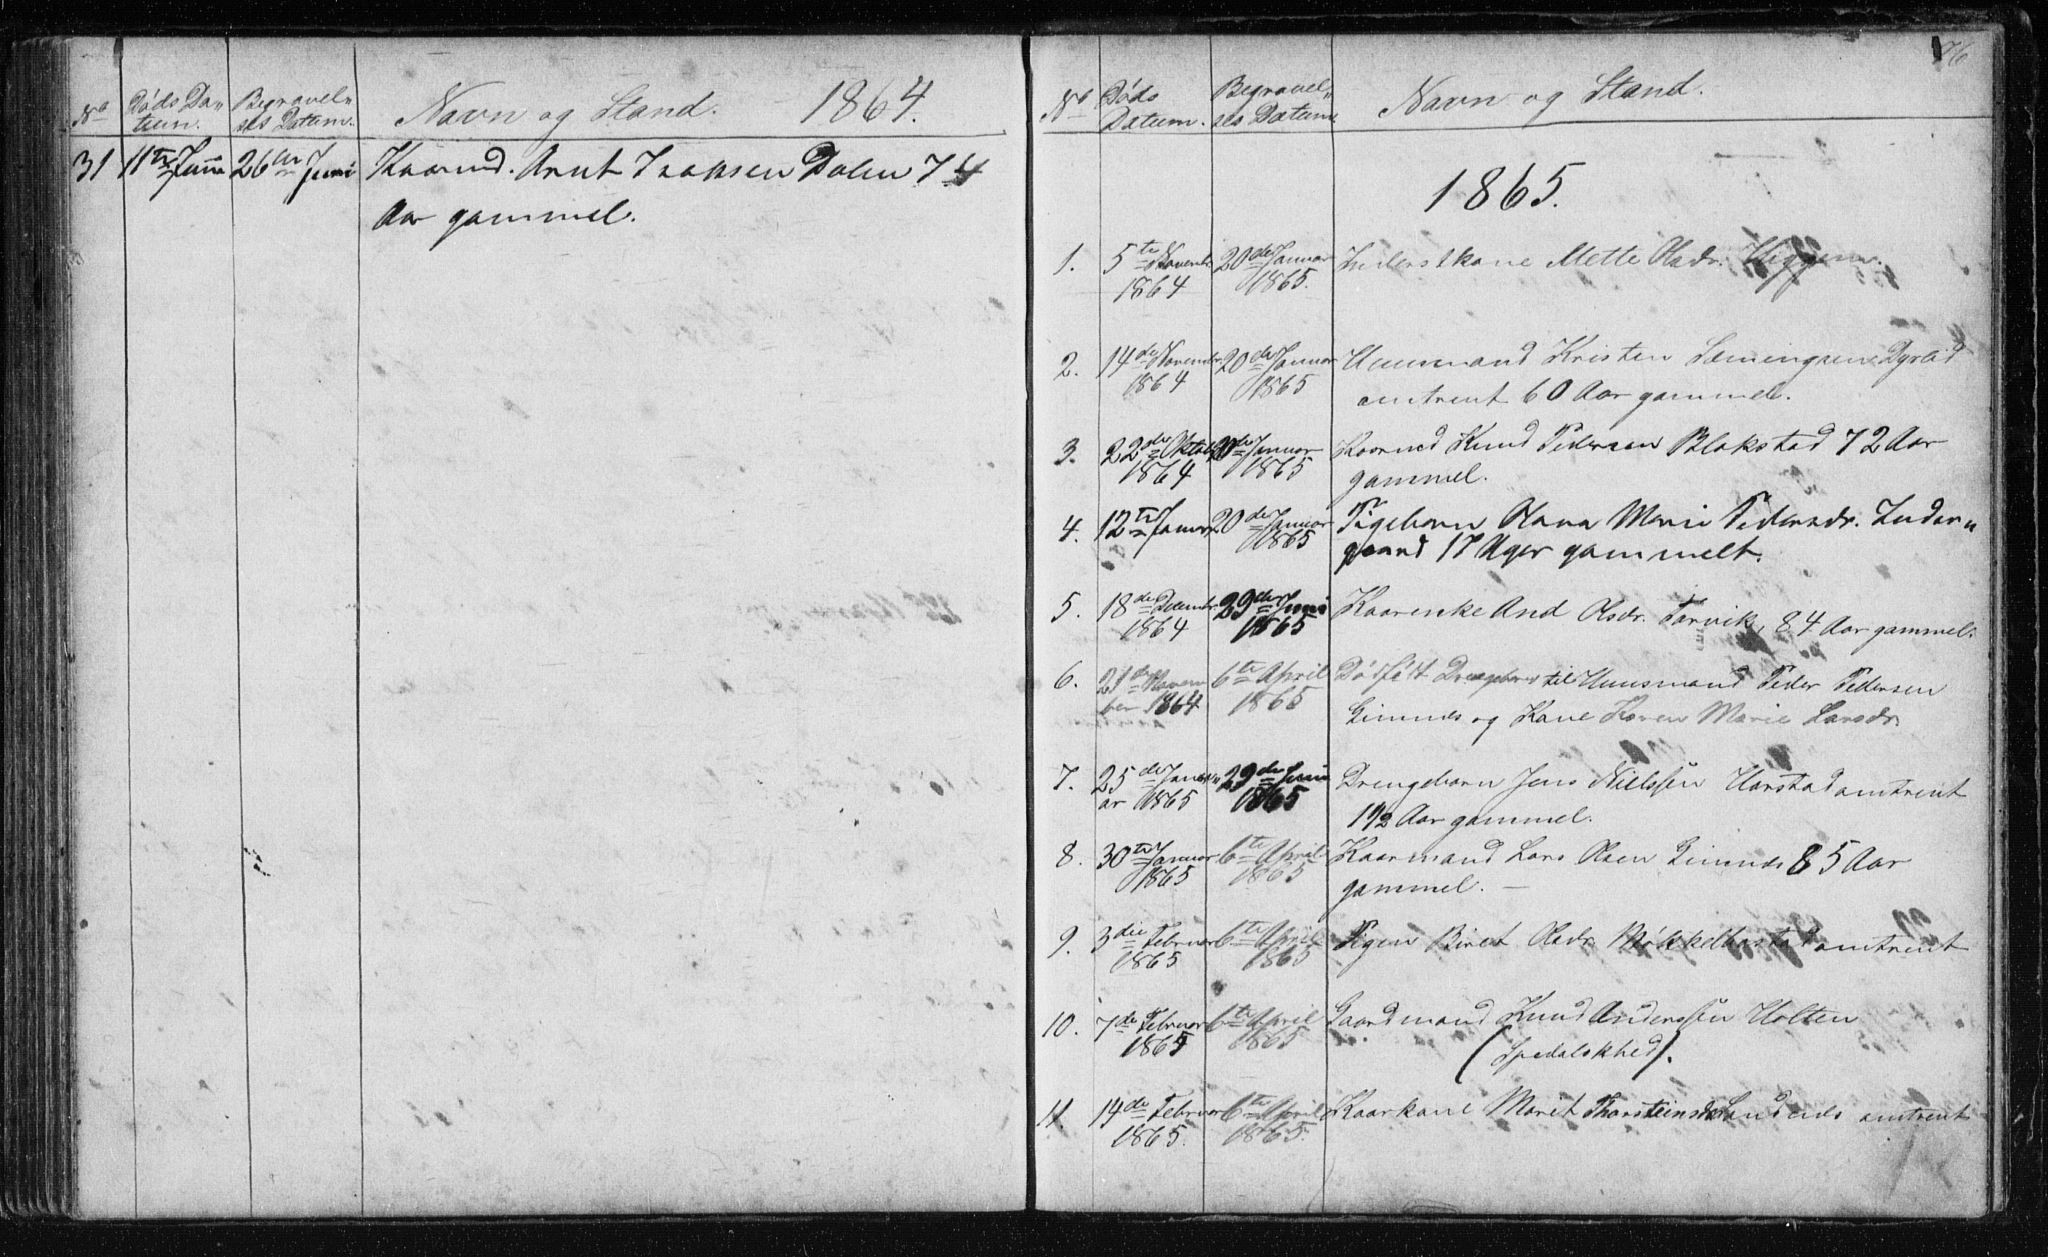 No Døds Da„ Begravel„ Navn og Stand. 1864.
tum. ses Datum.
31 11te Juni 26de Juni Kaarmd. Arnt Isaksen Dalen 74
Aar gammel.
76
No Døds Begravel„ Navn og Stand.
Datum. ses Datum
1865.
1. 5te Novembr 20de Januar Inderstkone Mette Olsdr.
1864 1865.
2. 14de Novembr 20de Januar Huusmand Kristen
1864 1865 omtrent 60 Aar gammel.
3. 22de Oktob 20de Januar Kaarmd Knud Pedersen Blakstad 72 Aar
1864 1865 gammel.
4. 12te Januar 20de Januar Pigebarn Olava Marie Pedersdr. Inder„
1865 gaard 17 Uger gammelt.
5. 18de Decembr. 29de Juni Kaarenke And Olsdr. Torvik, 84 Aar gammel.
1864 1865
6. 21de Novem 6te April Dødfødt Drengebarn til Huusmand Peder Pedersen
ber 1864 1865 Gimnes og Kone Karen Marie Larsdr.
7. 25de Janu„ 29de Juni Drengebarn Jens Nielssen Harstad omtrent
ar 1865 1865 1 1/2 Aar gammel.
8. 30te Januar 6te April Kaarmand Lars Olsen Gimnes 85 Aar
1865 1865 gammel.
9. 3die Februar 6te April Pigen Beret Olsdr. omtrent
1865 1865
10. 7de Februar 6te April Gaardmand Knud Anderssen Holten
1865 1865 (Spedalskhed).
11. 14de Februar 6te April Kaarkone Marit Thorsteinsdr omtrent
1865. 1865.